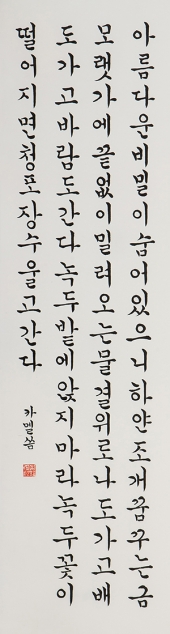 아름다운비밀이숨어있으니하얀조개꿈꾸는금
모랫가에끝없이밀려오는물결위로나도가고배
도가고바람도간다녹두밭에앉지마라녹두꽃이
떨어지면청포장수울고간다
카멜쏨